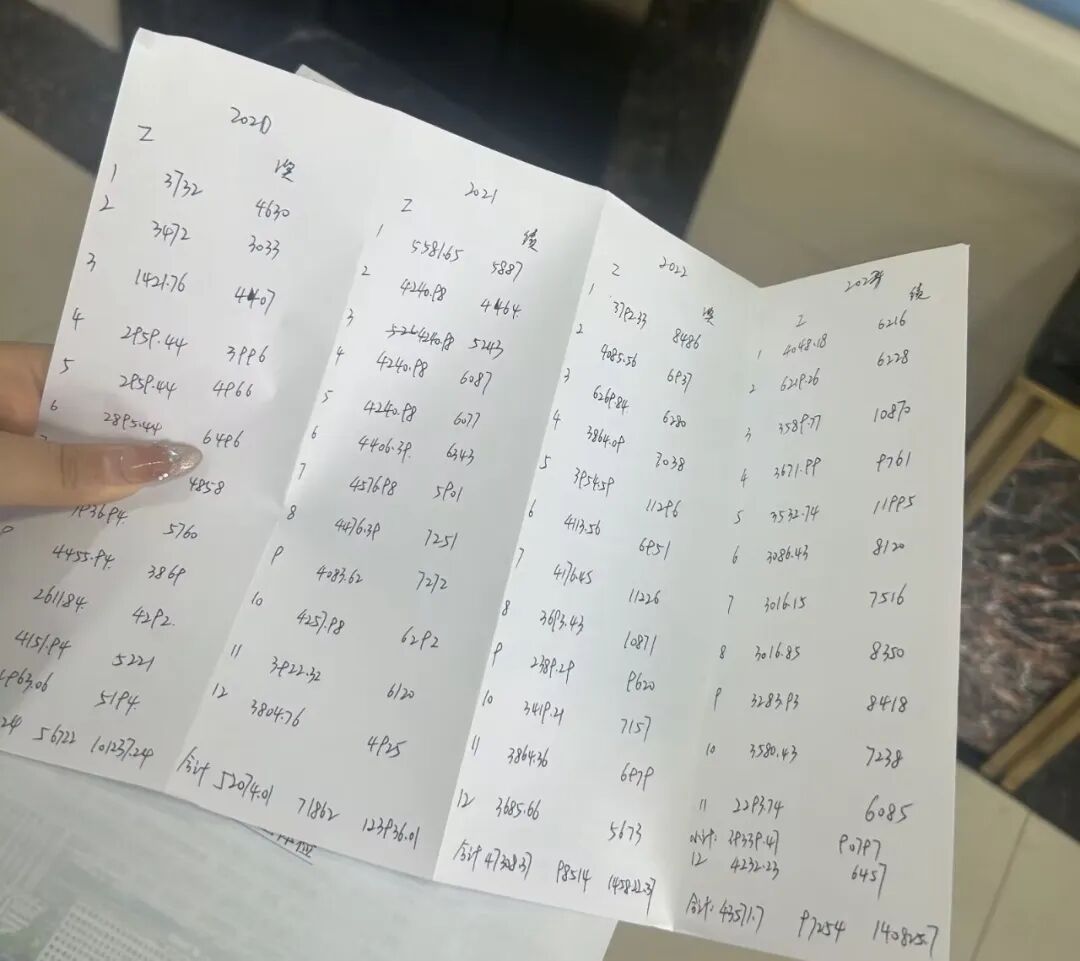 2020
Z 奖
1 3732 4630
2 3472 3033
3 1421.76 4407
4 2959.44 3996
5 2959.44 4966
6 2895.44 6496
4858
1936.94 5760
9 4455.94 3869
2611.84 4292
4151.94 5221
2963.06 5194
24 56722 101237.24
2021
Z 绩
1 5581.65 5887
2 4240.98 4464
3 4240.98 5243
4 4240.98 6087
5 4240.98 6077
6 4406.39 6343
7 4576.98 5901
8 4476.39 7251
9 4083.62 7272
10 4257.98 6292
11 3922.32 6120
12 3804.76 4925
合计 52074.01 71862 123936.01
2022
Z 奖
1 3792.33 8486
2 4085.56 6937
3 6269.84 6280
4 3864.09 7038
5 3954.59 11296
6 4113.56 6951
7 4176.45 11226
8 3693.43 10871
9 2389.29 9620
10 3419.21 7157
11 3864.36 6979
12 3685.66 5673
合计 47308.37 98514 145822.37
2023年
Z 绩
1 4048.18 6216
2 6219.26 6228
3 3589.77 10870
4 3671.99 9761
5 3532.74 11995
6 3086.43 8120
7 3016.15 7516
8 3016.85 8350
9 3283.93 8418
10 3580.43 7238
11 2293.74 6085
小计: 39339.47 90797
12 4232.23 6457
合计: 43571.7 97254 140825.7